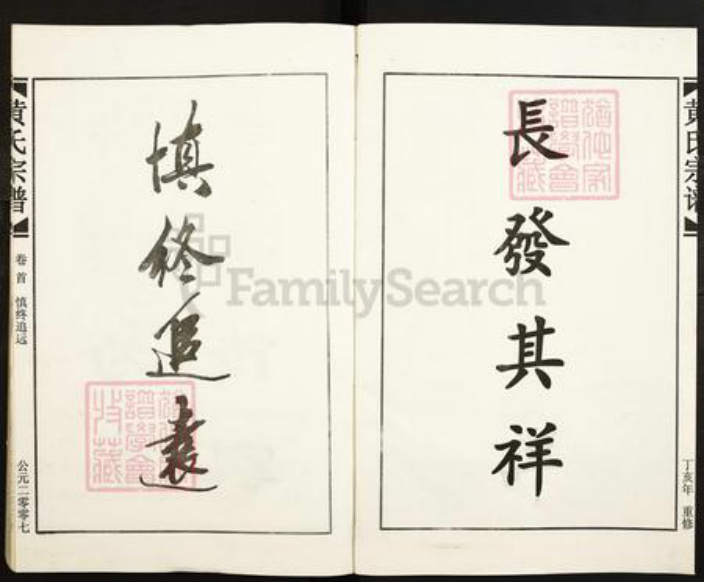 黄氏宗谱
丁亥年 重修
長發其祥
慎終追遠
黄氏宗谱
卷首 慎终追远
公元二零零七
FamilySearch